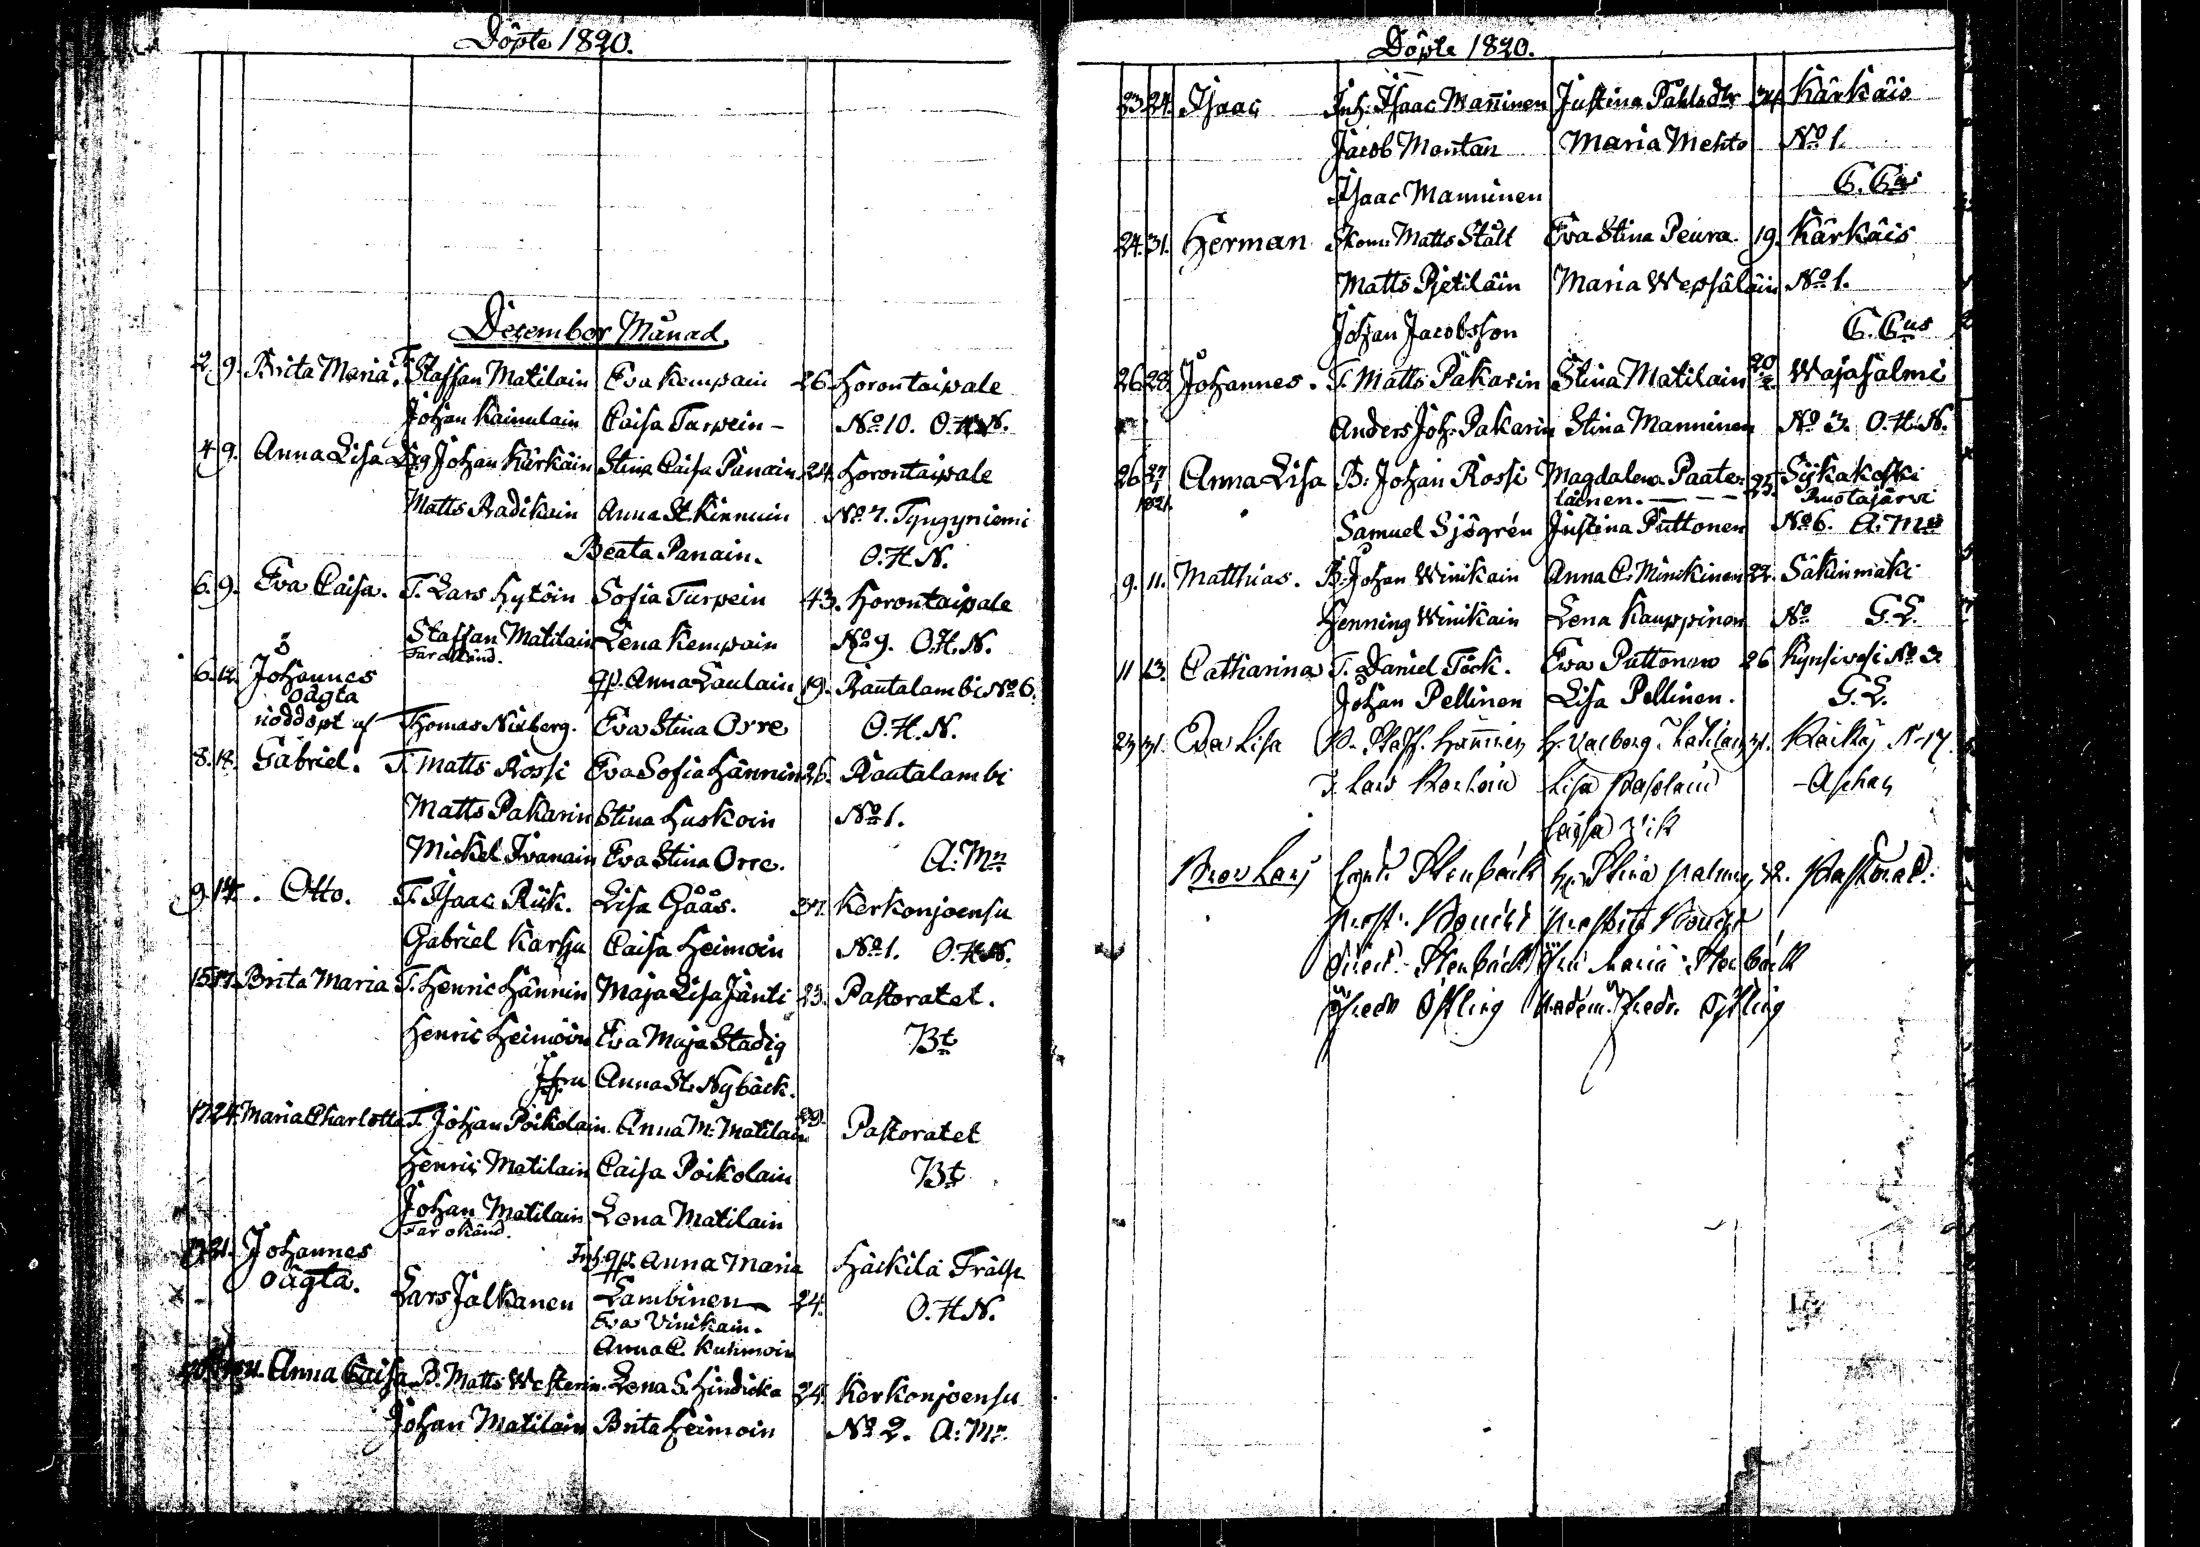 Döpte 1820.
December Månad.
2. 9. Brita Maria. T. Staffan Matilain Eva Kempain 26. Horontaipale
Johan Kainulain Caisa Turpein - No 10. O.H.N.
4 9. Anna Lisa Johan Kärkäin Stina Caisa Panain 24. Horontaipale
Matts Radikain Anna St. Kinnuin No 7. Tyngyniemi
Beata Panain. O.H.N.
6. 9. Eva Caisa. T. Lars Hytöin Sofia Turpein 43. Horontaipale
Staffan Matilain Lena Kempain No 9. O.H.N.
Far okänd.
6. 12. Johannes qp. Anna Laulain 19. Rautalambi No 6.
oägta
nöddöpt af Thomas Niiberg. Eva Stina Orre O.H.N.
8. 12. Gabriel. T. Matts Rossi Eva Sofia Hännin 26. Rautalambi
Matts Pakarin Stina Huskoin No 1.
Mickel Ivanain Eva Stina Orre. A: Mn
9. 14. Otto. T. Isaac Rük. Lisa Gåås. 37. Kerkonjoensu
Gabriel Karhu Caisa Heimoin No 1. O.H.N.
15 17. Brita Maria T. Henric Hännin Maja Lisa Jänti 23. Pastoratet.
Henric Heimoin Eva Maja Stadig Bt
Jfru Anna St. Nybäck.
17 24. Maria Charlotta T. Johan Poikolain. Anna M: Matilain 29. Pastoratet
Henric Matilain Caisa Poikolain Bt
Johan Matilain Lena Matilain
Far okänd.
21. Johannes Inh. qp. Anna Maria Häckilä Frälse
oägta. Lars Jalkanen Lambinen 24. O.H.N.
Eva Vinikain.
Anna C. Kuhmoin
Anna Caisa B. Matts Westerin. Lena S. Hindicka 24. Kerkonjoensu
Johan Matilain Brita Heimoin No 2. A: Mn
Döpte 1820.
23 24. Isaac Inh. Isaac Mañinen Justina Pahlsdtr 34 Kärkäis
Jacob Montan Maria Mehto No 1.
Isaac Manninen G. Gus
24. 31. Herman Skom. Matts Stålt Eva Stina Peura. 19. Kärkäis
Matts Pjetiläin Maria Wepsäläin No 1.
Johan Jacobsson G. Gus
26 28. Johannes. T. Matts Pakarin Stina Matilain 20 Wajasalmi
Anders Joh. Pakarin Stina Manninen No 3. O.H.N.
26 27 Anna Lisa B. Johan Rossi Magdalena Paate- 25. Sijkakoski
1821. lainen. - - - Ruotajärvi
Samuel Sjögrén Justina Puttonen No 6. A: Mn
9. 11. Matthias. B. Johan Winikain Anna C. Minckinen 22. Säkinmäki
Henning Winikain Lena Kauppinen No G.L.
11 13. Catharina T. Daniel Töck. Eva Puttonen 26 Kynsivesi No 3.
Johan Pellinen Lisa Pellinen. G.L.
23 31. Eva Lisa Staff. Hänninen 31. N. 17
T. Lars Lisa
Caisa
Stenbäck Stina 32. Pastorat.
Prost.
Stenbäck Maria Stenbäck
Östling Östling